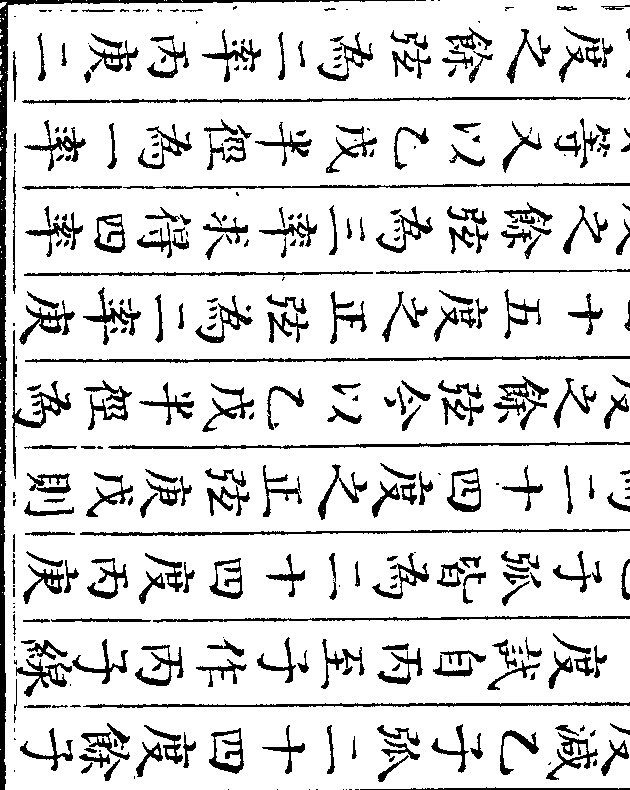 度減乙子弧二十四度餘子
度試自丙至子作丙子線
子弧皆為二十四度丙庚
二十四度之正弦庚戊則
度之餘弦今以乙戊半徑為
十五度之正弦為二率庚
之餘弦為三率求得四率
等又以乙戊半徑為一率
度之餘弦為二率丙庚二